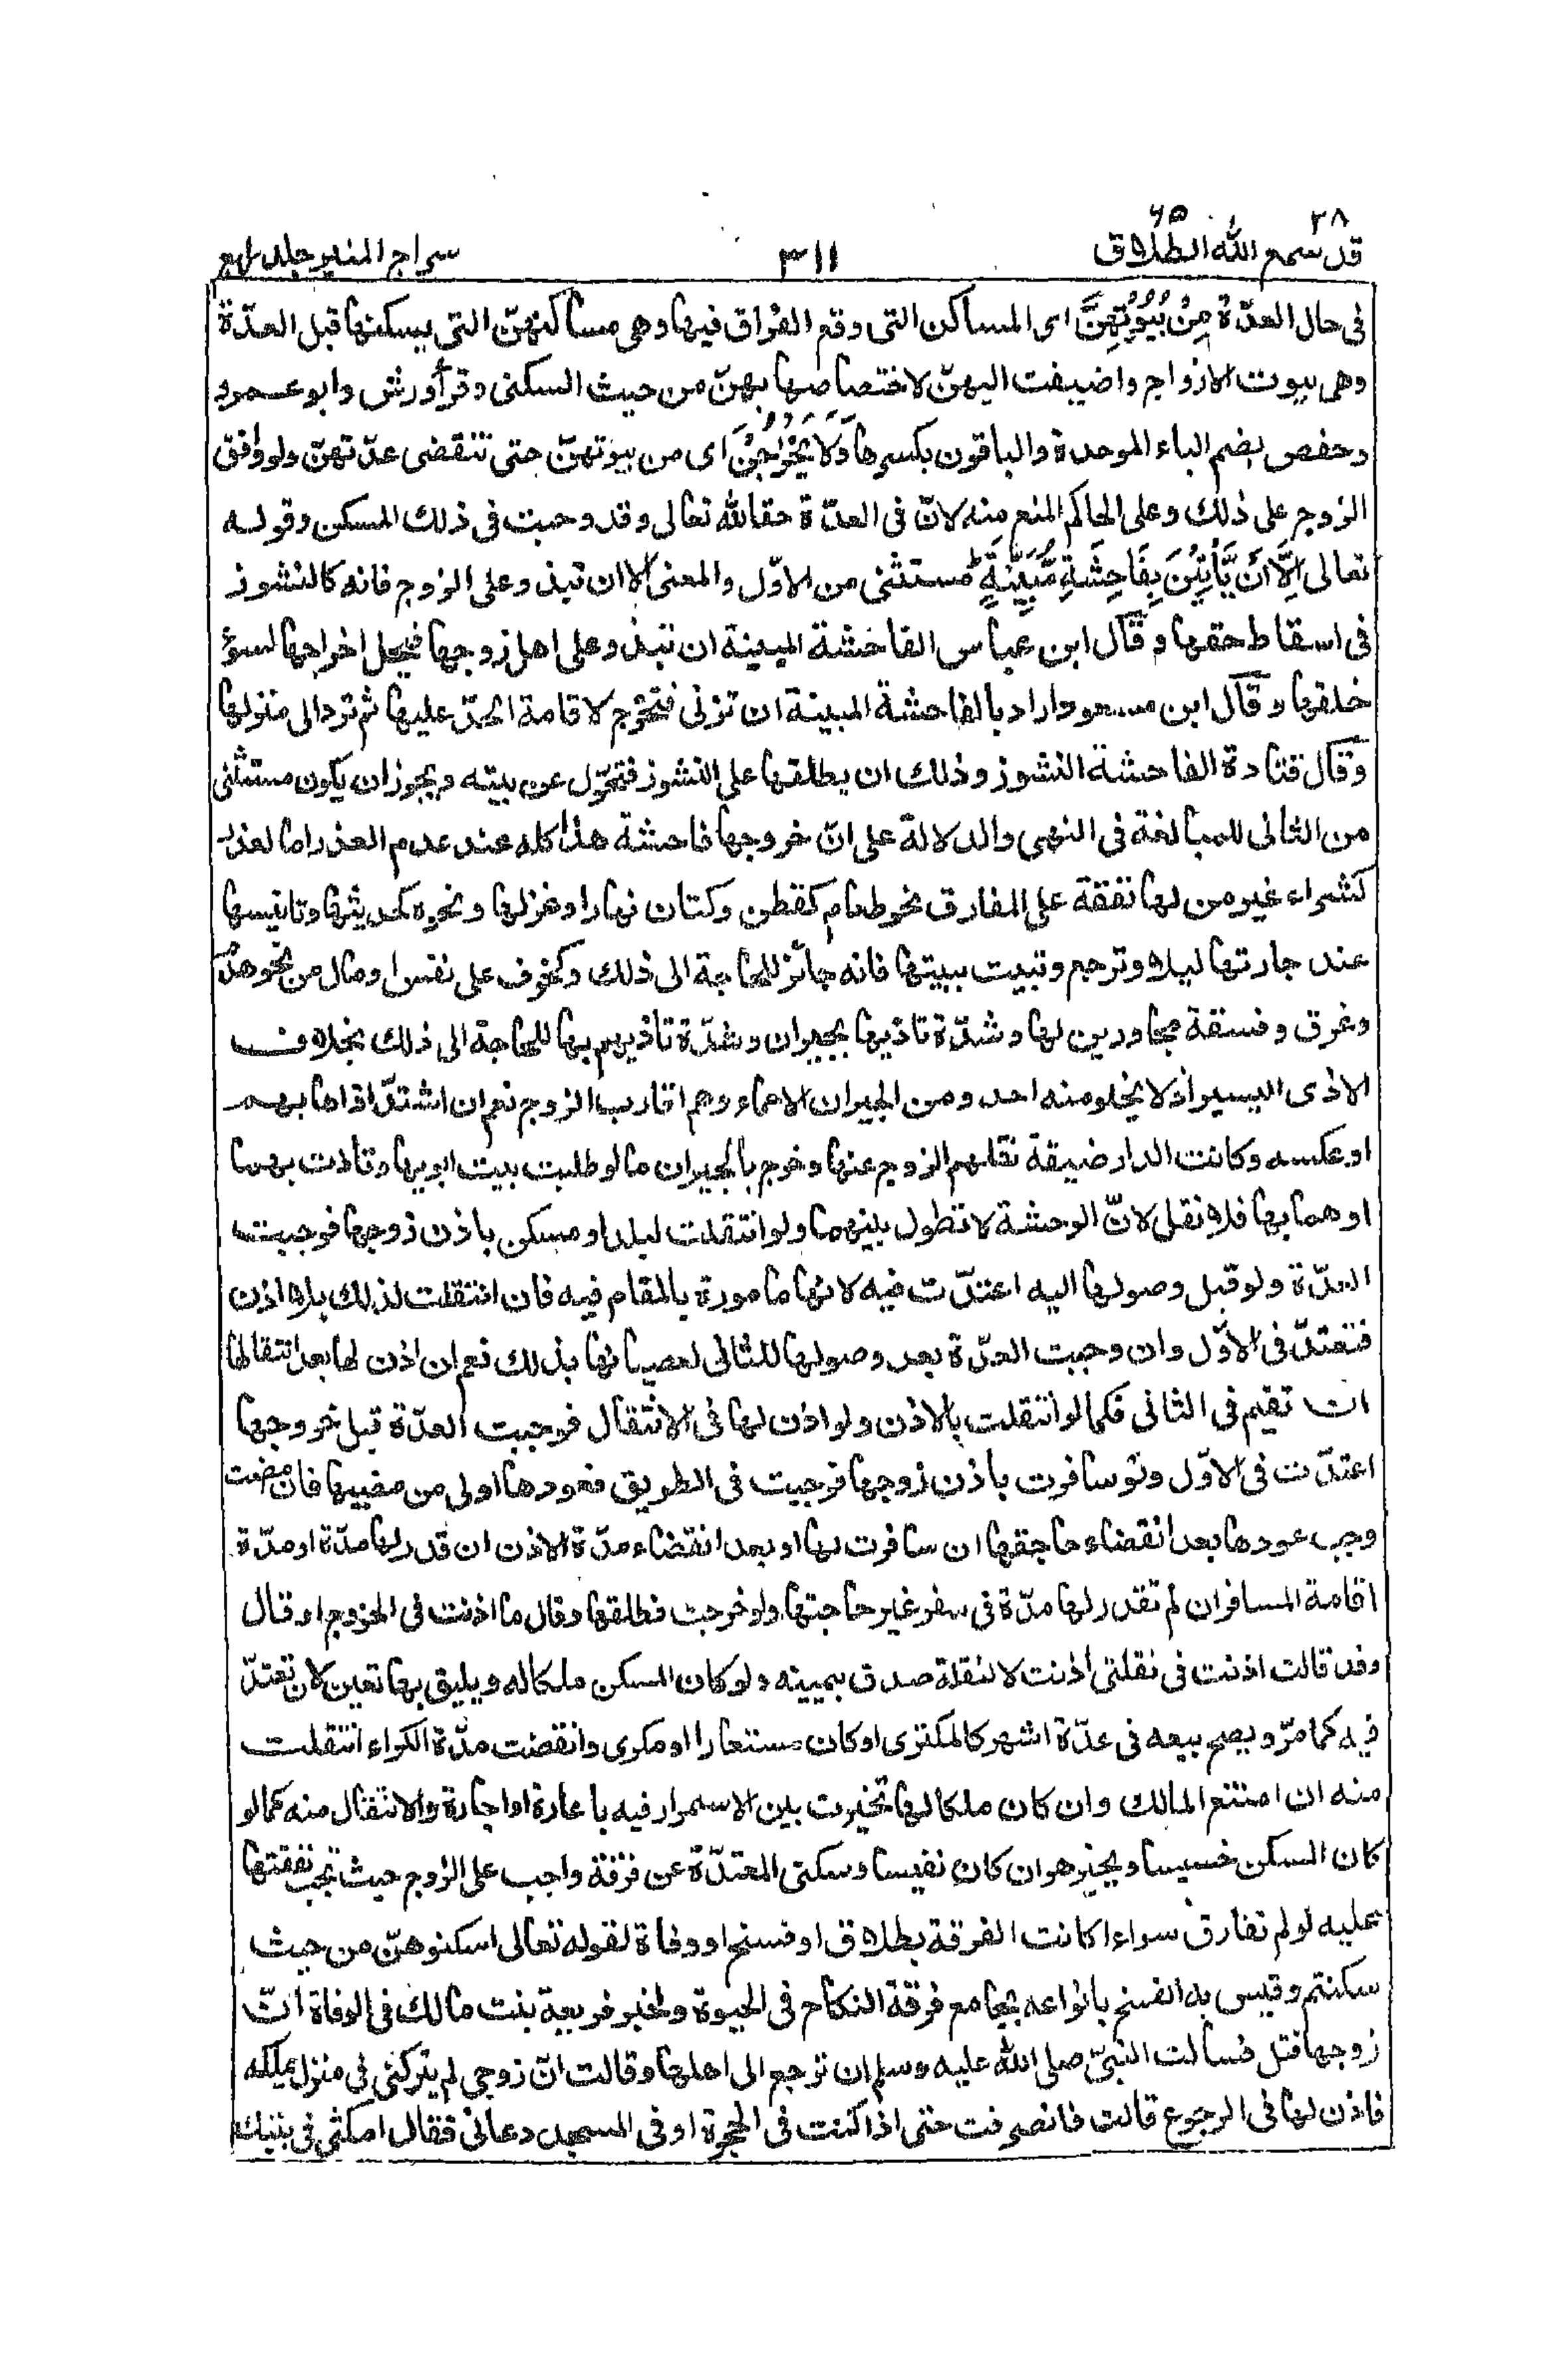 ٢٨ ٦٥
قد سمع الله الطلاق ٣١١ سراج المنير جلد رابع
فى حال العدّة مِنْ بُيُوْتِهِنَّ اى المساكن التى وقع الفراق فيها وهى مساكنهنّ التى يسكنها قبل العدّة
وهى بيوت الازواج واضيفت اليهنّ لاختصاصها بهنّ من حيث السكنى وقرأ ورش وابو عمرو
وحفص بضم الباء الموحدة والباقون بكسرها وَلَا يَخْرُجْنَ اى من بيوتهنّ حتى تنقضى عدّتهنّ ولو وافق
الزوج على ذلك وعلى الحاكم المنع منه لانّ فى العدّة حقا لله تعالى وقد وجبت فى ذلك المسكن وقوله
تعالى اِلَّا اَنْ يَّأْتِيْنَ بِفَاحِشَةٍ مُّبَيِّنَةٍ ط مستثنى من الاوّل والمعنى الا ان تبذو على الزوج فانه كالنشوز
فى اسقاط حقها وقال ابن عباس الفاحشة المبينة ان تبذو على اهل زوجها فيحل اخراجها لسوء
خلقها وقال ابن مسعود اراد بالفاحشة المبينة ان تزنى فتخرج لاقامة الحدّ عليها ثم تردالى منزلها
وقال قتادة الفاحشة النشوز وذلك ان يطلقها على النشوز فتحوّل عن بيته ويجوز ان يكون مستثنى
من الثانى للمبالغة فى النهى والدلالة على انّ خروجها فاحشة هذا كله عند عدم العذر اما لعذر
كشراء غير من لها نفقة على المفارق نحو طعام كقطن وكتان نهارا وغزلها ونحوه كحديثها وتانيسها
عند جارتها ليلا وترجع وتبيت ببيتها فانه جائز للحاجة الى ذلك وكخوف على نفس او مال من نحو هدم
وغرق وفسقة مجاورين لها وشدّة تاذيها بجيران وشدّة تاذيهم بها للحاجة الى ذلك بخلاف
الاذى اليسير اذ لا يخلو منه احد ومن الجيران الاحماء وهم اقارب الزوج نعم ان اشتدّ اذاها بهم
او عكسه وكانت الدار ضيقة نقلهم الزوج عنها وخرج بالجيران ما لو طلبت بيت ابويها وتاذت بهما
او هما بها فلا نقل لانّ الوحشة لا تطول بينهما ولو انتقلت لبلد او مسكن باذن زوجها فوجبت
العدّة ولو قبل وصولها اليه اعتدّت فيه لانها مامورة بالمقام فيه فان انتقلت لذلك بلا اذن
فتعتدّ فى الاوّل وان وجبت العدّة بعد وصولها للثانى لعصيانها بذلك نعم ان اذن لها بعد انتقالها
ان تقيم فى الثانى فكما لو انتقلت بالاذن ولو اذن لها فى الانتقال فوجبت العدّة قبل خروجها
اعتدّت فى الاوّل ولو سافرت باذن زوجها فوجبت فى الطريق فعودها اولى من مضيها فان مضت
وجب عودها بعد انقضاء حاجتها ان سافرت لها او بعد انقضاء مدّة الاذن ان قدر لها مدّة او مدّة
اقامة المسافر ان لم تقدر لها مدّة فى سفر غير حاجتها ولو خرجت فطلقها وقال ما اذنت فى الخروج او قال
وقد قالت اذنت فى نقلتى اذنت لا لنقلة صدق بيمينه ولو كان المسكن ملكا له ويليق بها تعين لان تعتدّ
فيه كما مرّ ويصح بيعه فى عدّة اشهر كالمكترى او كان مستعارا او مكرى وانقضت مدّة الكراء انتقلت
منه ان امتنع المالك وان كان ملكا لها تخيرت بين الاسمرار فيه باعارة او اجارة والانتقال منه كما لو
كان السكن خسيسا ويخير هو ان كان نفيسا وسكنى المعتدّة عن فرقة واجب على الزوج حيث تجب نفقتها
عليه لو لم تفارق سواء اكانت الفرقة بطلاق او فسخ او وفاة لقوله تعالى اسكنوهنّ من حيث
سكنتم وقيس به الفسخ بانواعه بجامع فرقة النكاح فى الحيوة ولخبر فريعة بنت مالك فى الوفاة انّ
زوجها قتل فسالت النبىّ صلى الله عليه وسلم ان ترجع الى اهلها وقالت انّ زوجى لم يتركنى فى منزل يملكه
فاذن لها فى الرجوع قالت فانصرفت حتى اذا كنت فى الحجرة او فى المسجد دعانى فقال امكثى فى بيتك